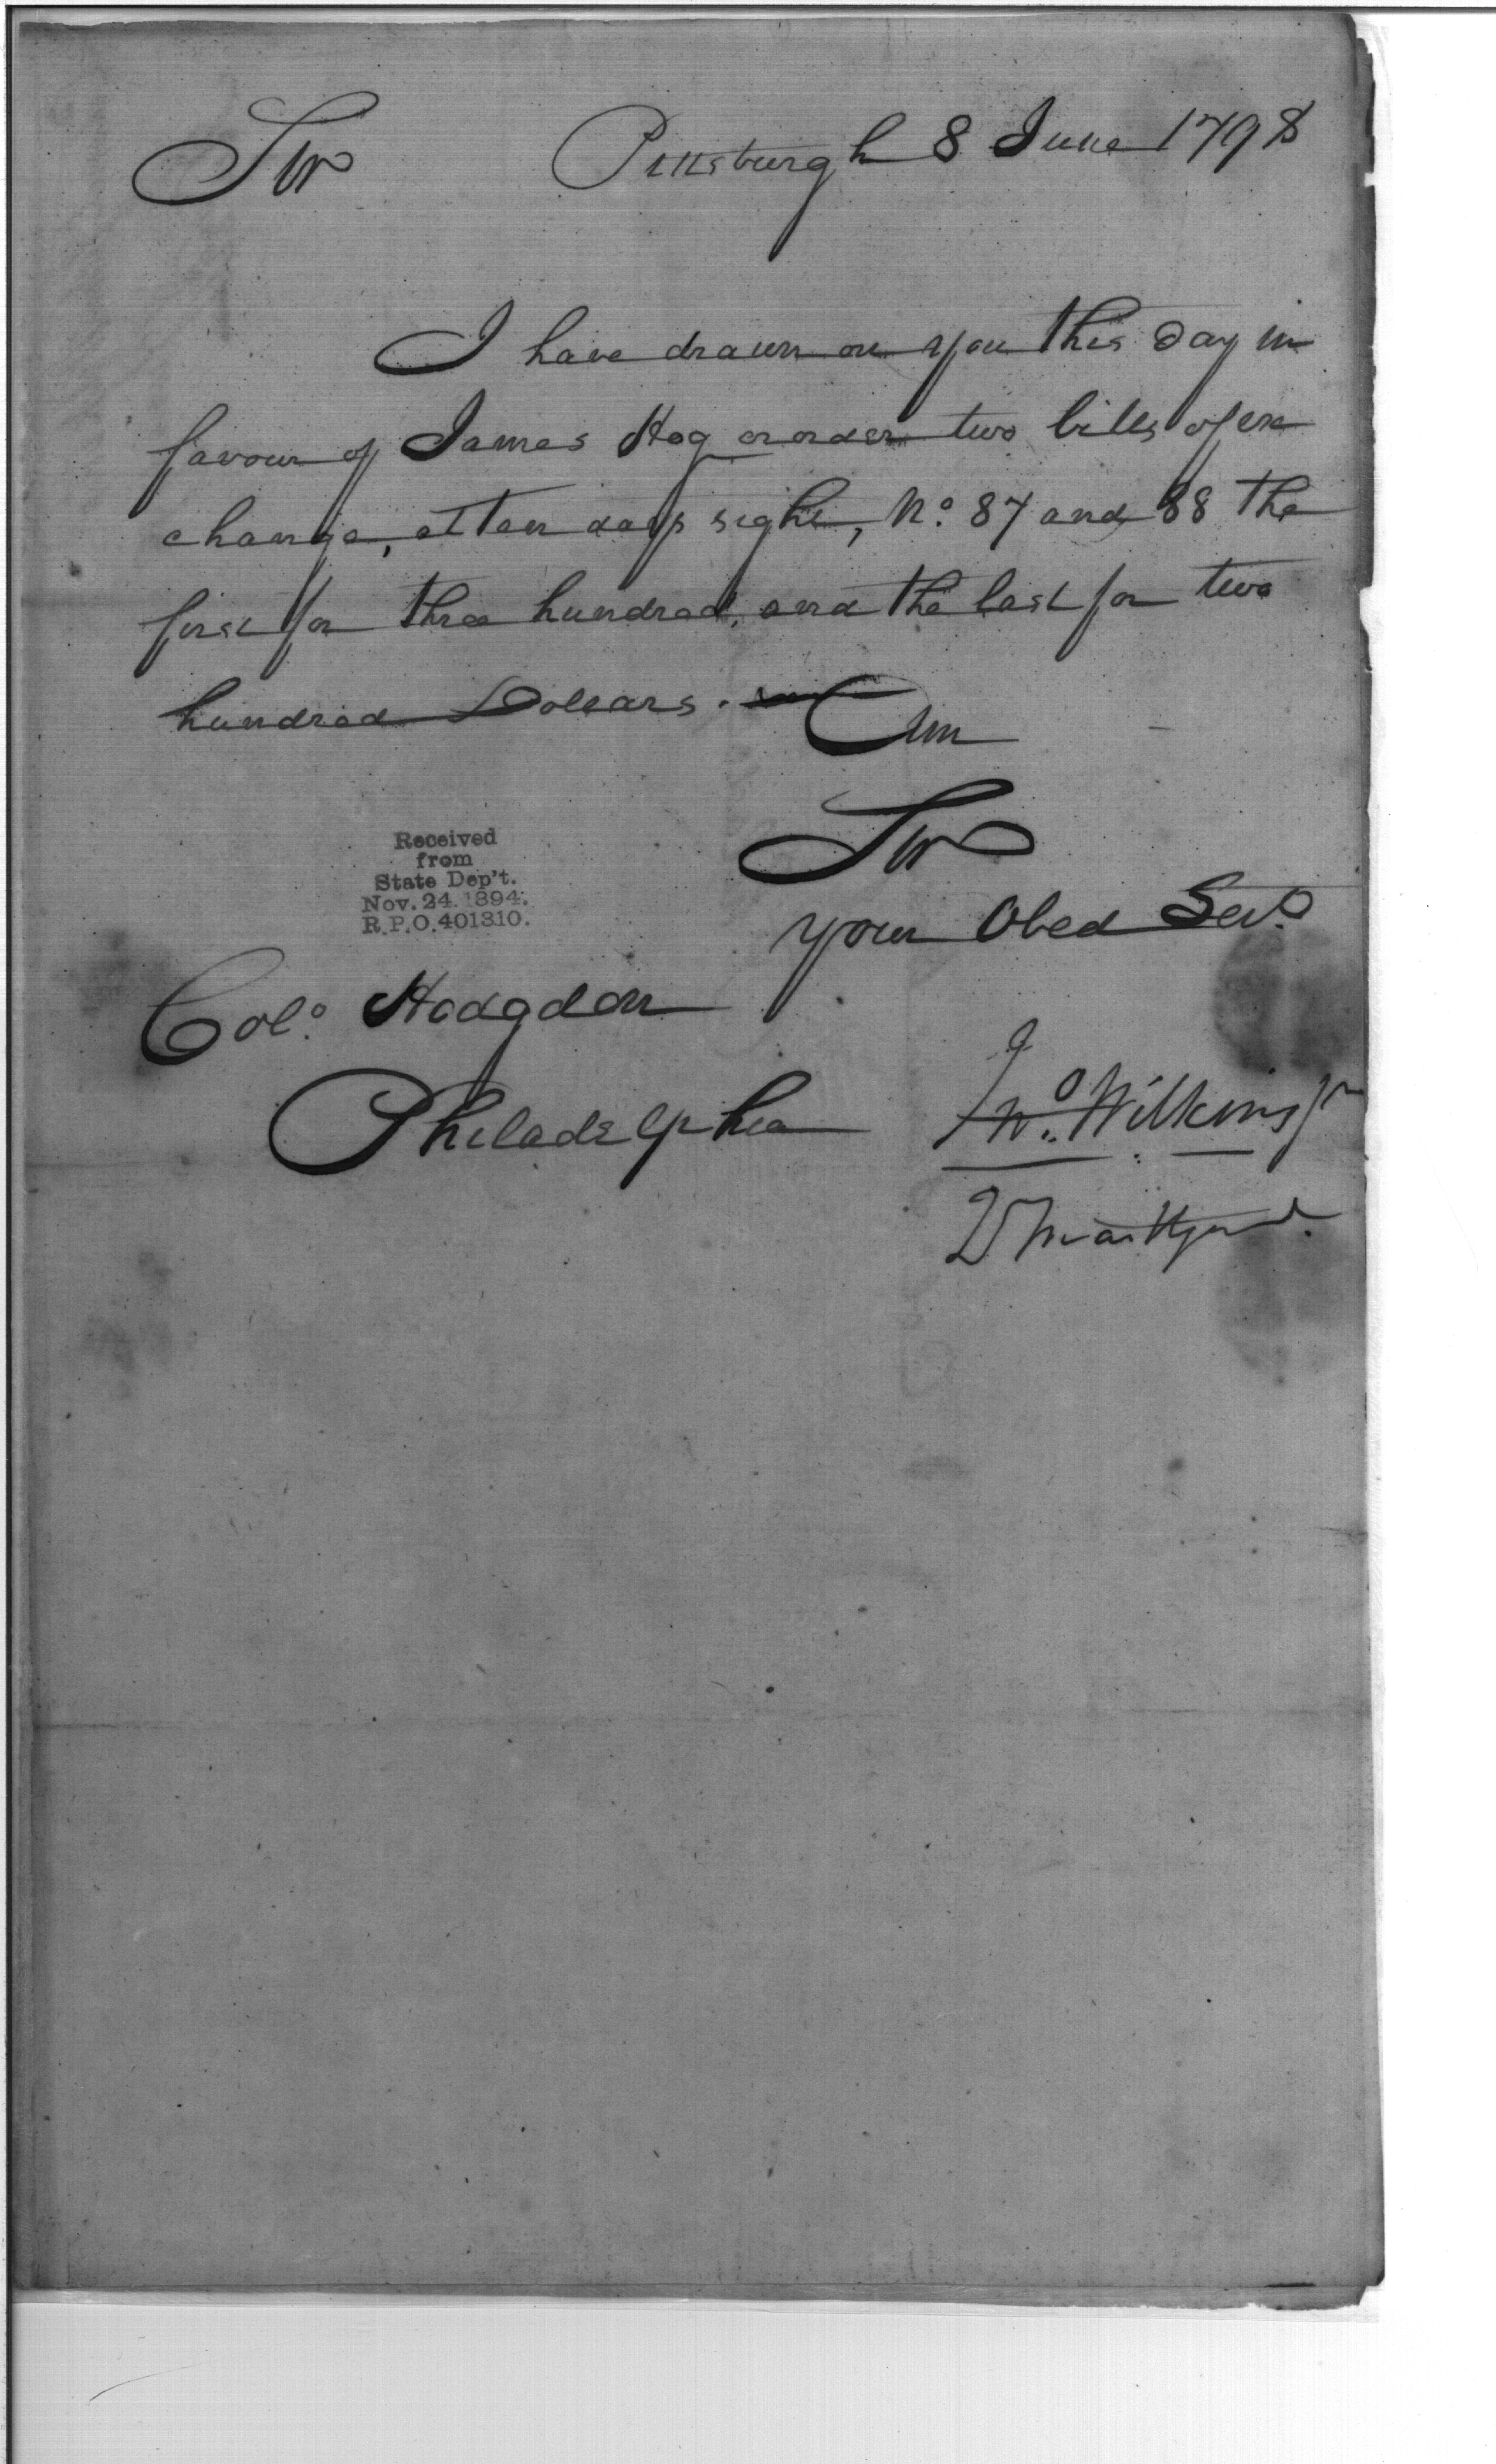 Sir Pittsburgh 8 June 1798
I have drawn on you this day in
favour of James Hog or order two bills of ex
change, at ten days sight, No. 87 and 88 the
first for three hundred, and the last for two
hundred Dollars. Am
Sir
your Obed Servt.
Received
from
State Dep't.
Nov. 24. 1894.
R.P.O. 401310.
Colo. Hodgdon
Philadelphia
Jno. Wilkins Jr